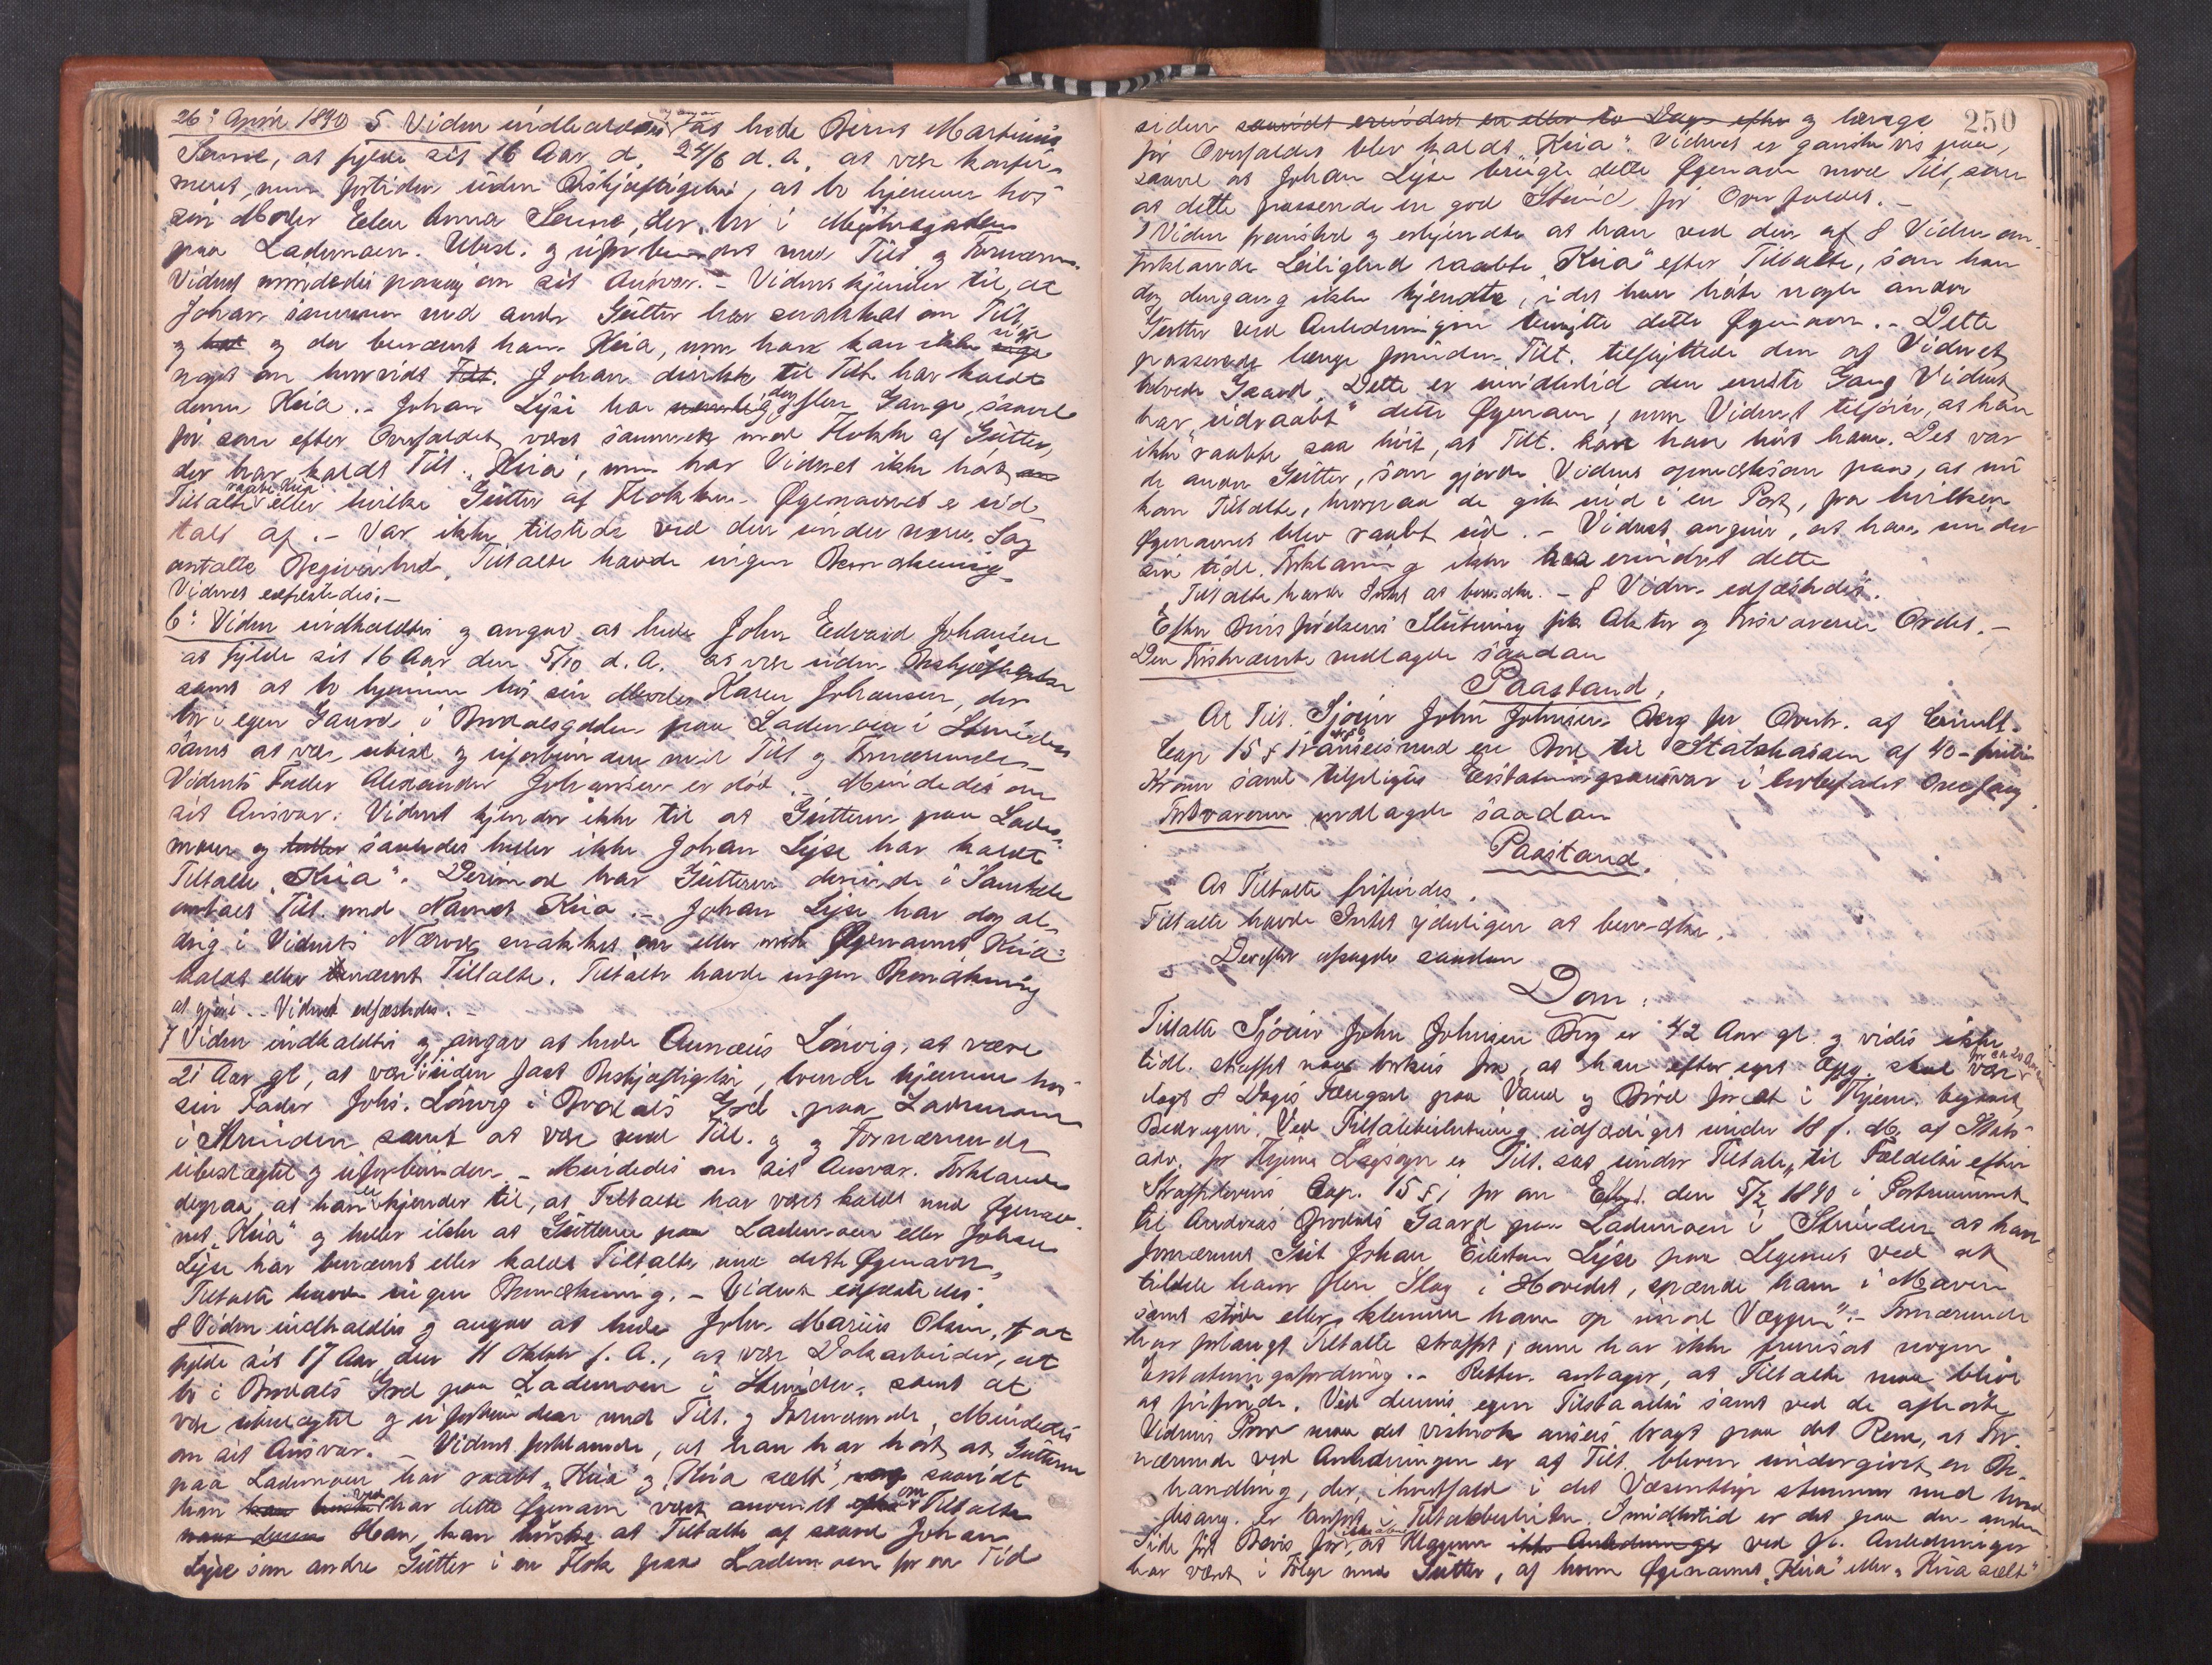 26: April 1890 5 Vidne indkaldtes angav at hede Bernt Martinius
Semre, at fylde sit 16 Aar d. 24/6 d. A. at være konfir-
meret, men fortiden uden Beskjæftigelse, at bo hjemme hos
sin Moder Ellen Anna Semre, der bor i
paa Lademoen. Ubesl. og uforbunden med Tilt og Fornærm.
Vidnet mindedes paany om sit Ansvar. - Vidnet kjender til, at
Johan sammen med andre Gutter har snakket om Tilt
og da benævnt ham Kua, men han kan ikke sige
noget om hvorvidt Johan direkte til Tilt har kaldt
denne Kua. - Johan Lyse har dog flere Gange, saavel
før som efter Overfaldet været sammen med Flokke af Gutter,
der har kaldt Tilt. "Kua", men har Vidnet ikke hørt
Tiltalte raabe Kua eller hvilke Gutter af Flokken Øgenavnet er ud-
talt af. - Var ikke tilstede ved den under nærv. Sag
omtalte Begivenhed. Tiltalte havde ingen Bemærkning.
Vidnet entlededes. -
6: Vidne indkaldtes og angav at hede John Edvard Johansen
at fylde sit 16 Aar den 5/10 d. A. at være uden Beskjæftigelse
samt at bo hjemme hos sin Moder Karen Johansen, der
bor i egen Gaard i Brodalsgaden paa Lademoen i Strinden
samt at være ubesl. og uforbunden med Tilt og Fornærmede -
Vidnets Fader Alexander Johansen er død. - Mindedes om
sit Ansvar. Vidnet kjender ikke til at Gutterne paa Lade-
moen og saaledes heller ikke Johan Lyse har kaldt
Tiltalte "Kua". Derimod har Gutterne derinde i Samtale
omtalt Tilt. med Navnet Kua. - Johan Lyse har dog al-
drig i Vidnets Nærvær snakket om eller med Øgenavnet Kua
kaldt eller benævnt Tiltalte. Tiltalte havde ingen Bemærkning
at gjøre. - Vidnet entlededes. -
7 Vidne indkaldtes og angav at hede Annæus Lønvig, at være
21 Aar gl, at være uden fast Beskjæftigelse, boende hjemme hos
sin Fader Johs. Lønvig i Brodals Grd paa Lademoen
i Strinden samt at være med Tilt. og Fornærmede
ubeslægtet og uforbunden. - Mindedes om sit Ansvar. Forklarede
derpaa, at han ei kjender til, at Tiltalte har været kaldt med Øgenav-
net "Kua" og heller ikke at Gutterne paa Lademoen eller Johan
Lyse har benævnt eller kaldt Tiltalte med dette Øgenavn.
Tiltalte havde ingen Bemærkning. - Vidnet entlededes.
8 Vidne indkaldtes og angav at hede John Marius Olsen, at
fylde sit 17 Aar den 11 Oktober f. A., at være Dokarbeider, at
bo i Brodals Grd paa Lademoen i Strinden samt at
være ubeslægtet og uforbunden med Tilt. og Fornærmede. Mindedes
om sit Ansvar. - Vidnet forklarede, at han har hørt at Gutterne
paa Lademoen har raabt "Kua" og "Kua sælt", saavidt
han ved har dette Øgenavn været anvendt om Tiltalte
Han kan huske at Tiltalte af saavel Johan
Lyse som andre Gutter i en Flok paa Lademoen for en Tid
250
siden saavidt erindres en eller to Dage efter og længe
før Overfaldet blev kaldt "Kua". Vidnet er ganske vis paa,
saavel at Johan Lyse brugte dette Øgenavn mod Tilt, som
at dette passerede en god Stund før Overfaldet. -
7 Vidne fremstod og erkjendte at han ved den af 8 Vidne om-
forklarede Leilighed raabte "Kua" efter Tiltalte, som han
dog dengang ikke kjendte, idet han hørte nogle andre
Gutter ved Anledningen benytte dette Øgenavn. - Dette
passerede længe forinden Tilt. tilflyttede den af Vidnet
beboede Gaard. Dette er imidlertid den eneste Gang Vidnet
har "udraabt" dette Øgenavn, men Vidnet tilføier, at han
ikke raabte saa høit, at Tilt. kan have hørt ham. Det var
de andre Gutter, som gjorde Vidnet opmærksom paa, at nu
kom Tiltalte, hvorpaa de gik ind i en Port, fra hvilken
Øgenavnet blev raabt ud. - Vidnet angiver, at han under
sin tidl. Forklaring ikke erindret dette
Tiltalte havde Intet at bemærke. - 8 Vidne entlededes.
Efter Bevisførelsens Slutning fik Aktor og Forsvareren Ordet. -
Den Førstnævnte nedlagde saadan
Paastand,
At Tilt. Sjouer John Johnsen Berg for Overtr. af Criml.
Cap 15 § 1 ansees med en Bod til Statskassen af 40 - firti
Kroner samt tilpligtes Erstatningsansvar i lovbefalet Omfang.
Forsvareren nedlagde saadan
Paastand.
At Tiltalte frifindes.
Tiltalte havde Intet yderligere at bemærke.
Derefter afsagdes saadan
Dom:
Tiltalte Sjouer John Johnsen Berg er 42 Aar gl. og vides ikke
tidl. straffet naar bortsees fra, at han efter eget Opg. skal være for ca 20 Aar
ilagt 8 Dages Fængsel paa Vand og Brød for et i Trhjem begaaet
Bedrageri. Ved Tiltalebeslutning udfærdiget under 18 f. M. af Stats-
adv. for Trhjems Lagsogn er Tilt. sat under Tiltale "til Fældelse efter
Straffelovens Cap. 15 § 1 for om den 5/2 1890 i Portrummet
til Andreas Brodals Gaard paa Lademoen i Strinden at have
fornærmet Gut Johan Eilertsen Lyse paa Legemet ved at
tildele ham flere Slag i Hovedet, spænde ham i Maven
samt støde eller klemme ham op imod Væggen". - Fornærmede
har forlangt Tiltalte straffet, men har ikke fremsat nogen
Erstatningsfordring. - Retten antager, at Tiltalte maa blive
at frifinde. Ved dennes egen Tilstaaelse samt ved de afhørte
Vidners Prov maa det vistnok ansees bragt paa det Rene, at For-
nærmede ved Anledningen er af Tilt. bleven undergivet en Be-
handling, der, ihvertfald i det Væsentlige stemmer med hvad
desang. er anført i Tiltalebeslutn. Imidlertid er det paa den anden
Side ført Bevis for, at Klageren ikke Anledninger ved fl. Anledninger
har været i Følge med Gutter, af hvem Øgenavnet "Kua" eller "Kua sælt"